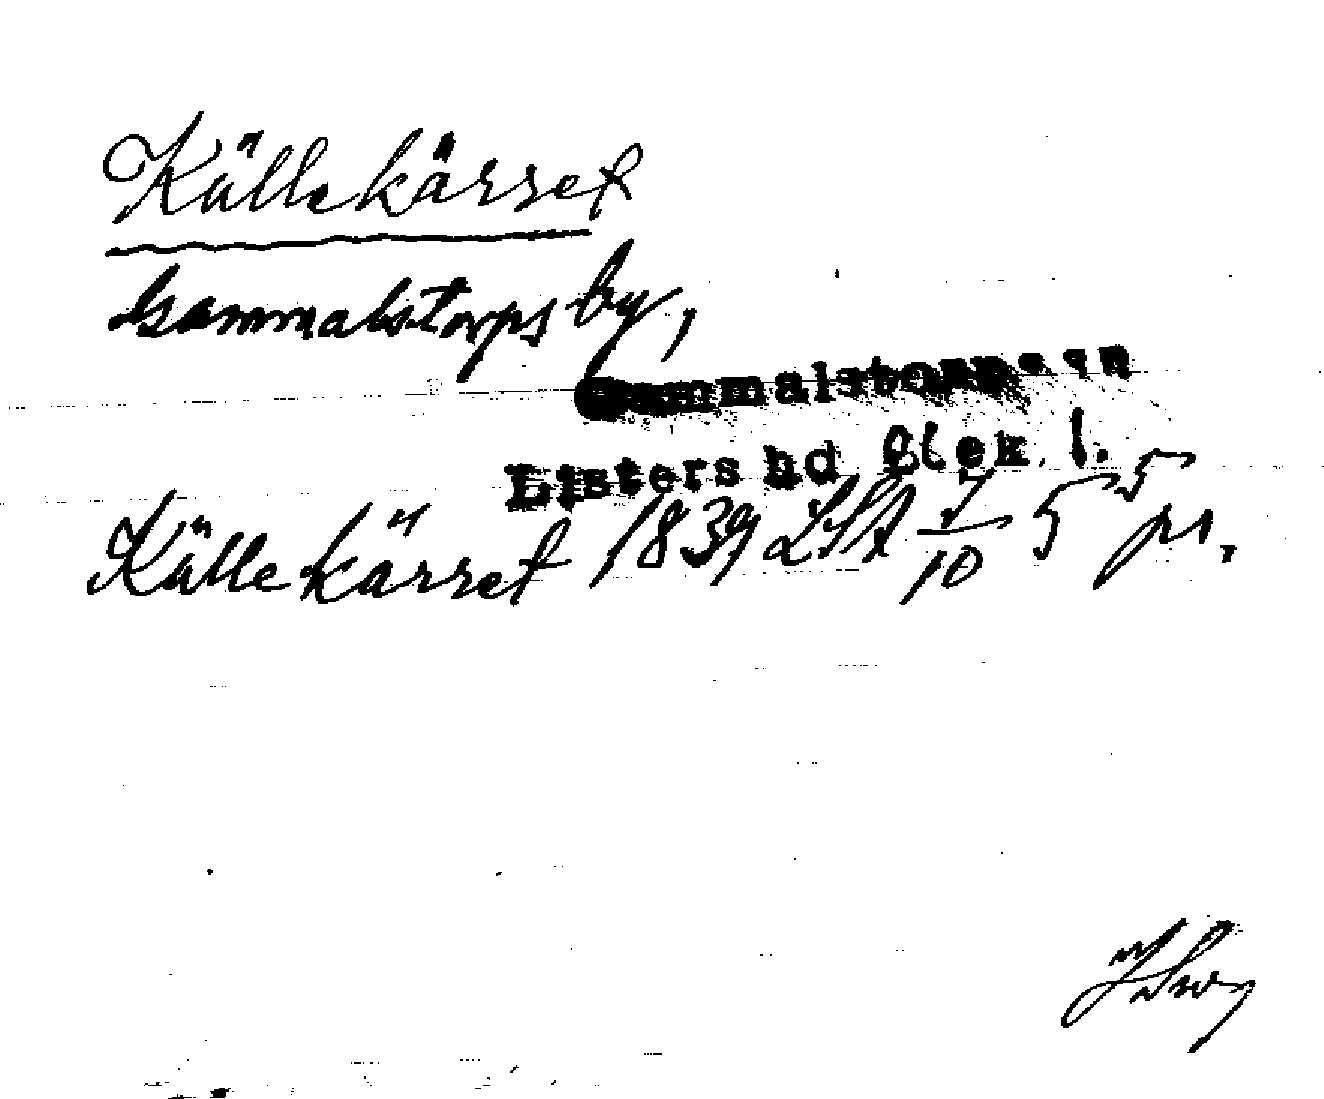 Källekärret
Gammalstorps by,
Gammalstorps sn
Listers hd Blek. l.
Källekärret 1839 LSA 7/10 5 5 pr.